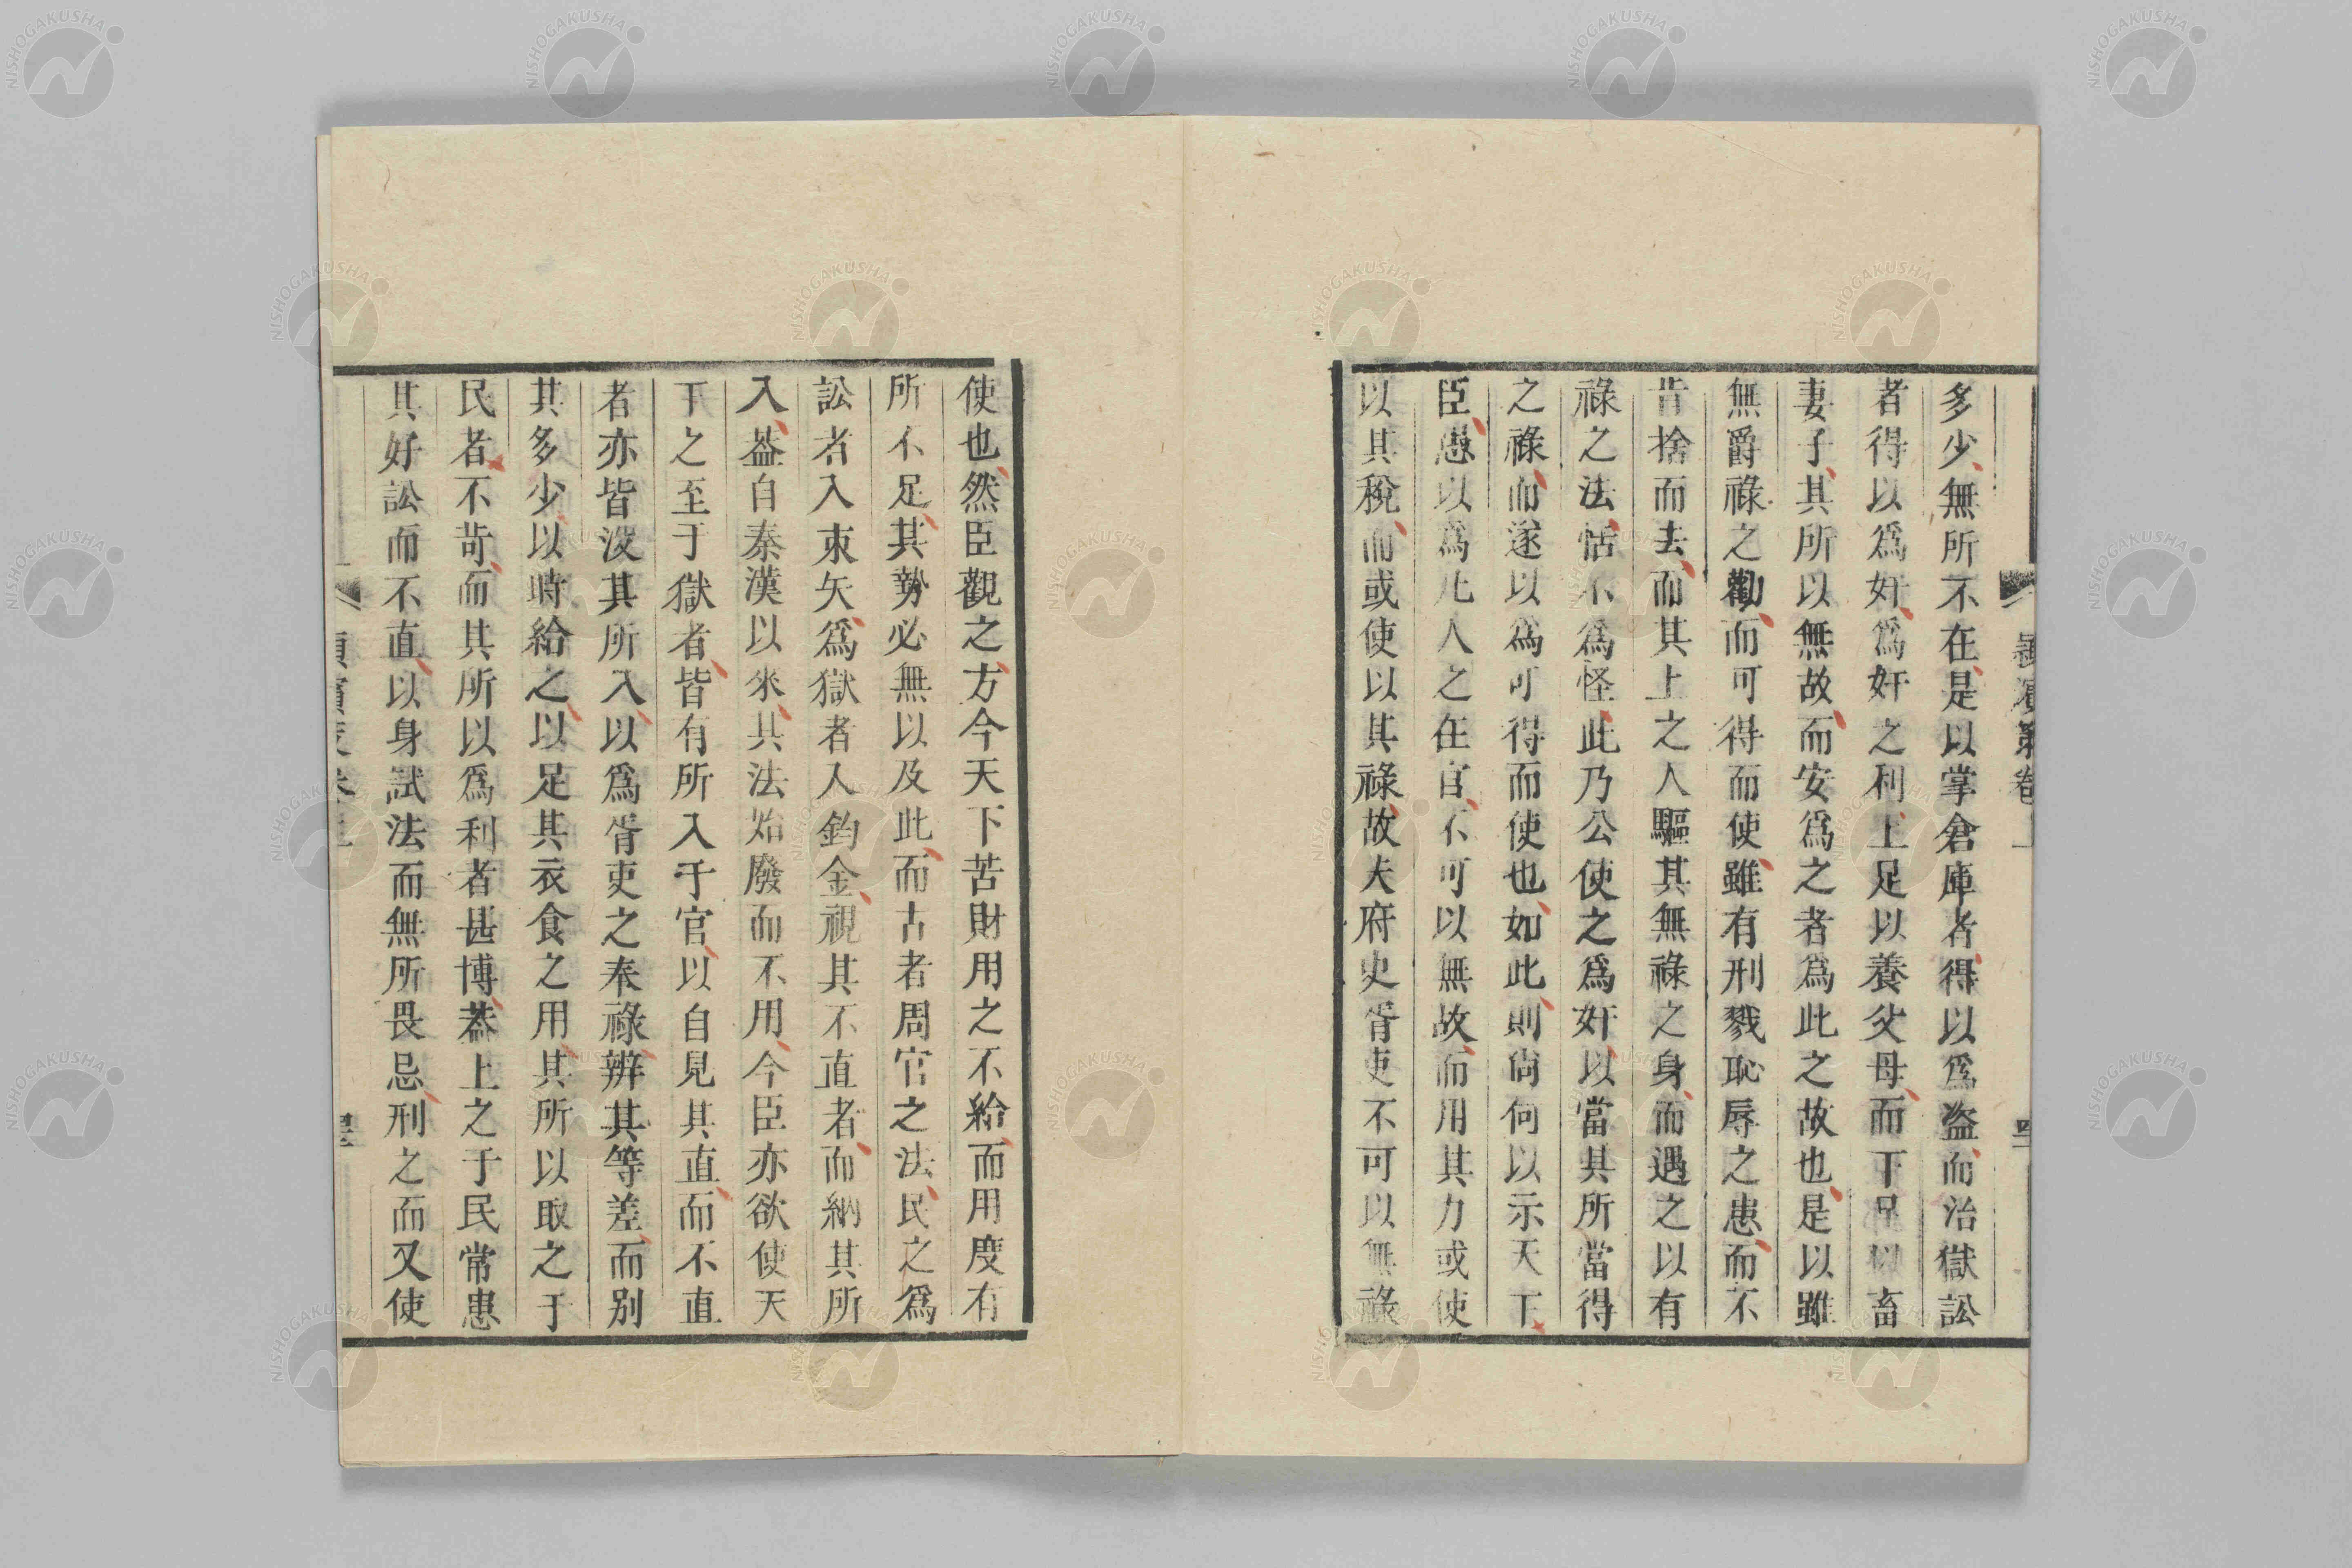 多少無所不在是以掌倉庫者得以爲盜而治獄訟
者得以爲奸爲奸之利上足以養父母而下足以畜
妻子其所以無故而安爲之者爲此之故也是以雖
無爵祿之勸而可得而使雖有刑戮恥辱之患而不
肯捨而去而其上之人驅其無祿之身而遇之以有
祿之法恬不爲怪此乃公使之爲奸以當其所當得
之祿而遂以爲可得而使也如此則尚何以示天下
臣愚以爲凡人之在官不可以無故而用其力或使
以其稅而或使以其祿故夫府史胥吏不可以無祿
使也然臣觀之方今天下苦財用之不給而用度有
所不足其勢必無以及此而古者周官之法民之爲
訟者入束矢爲獄者入鈞金視其不直者而納其所
入葢自秦漢以來其法始廢而不用今臣亦欲使天
下之至于獄者皆有所入于官以自見其直而不直
者亦皆沒其所入以爲胥吏之奉祿辨其等差而別
其多少以時給之以足其衣食之用其所以取之于
民者不苛而其所以爲利者甚博葢上之于民常患
其好訟而不直以身試法而無所畏忌刑之而又使
NISHOGAKUSHA